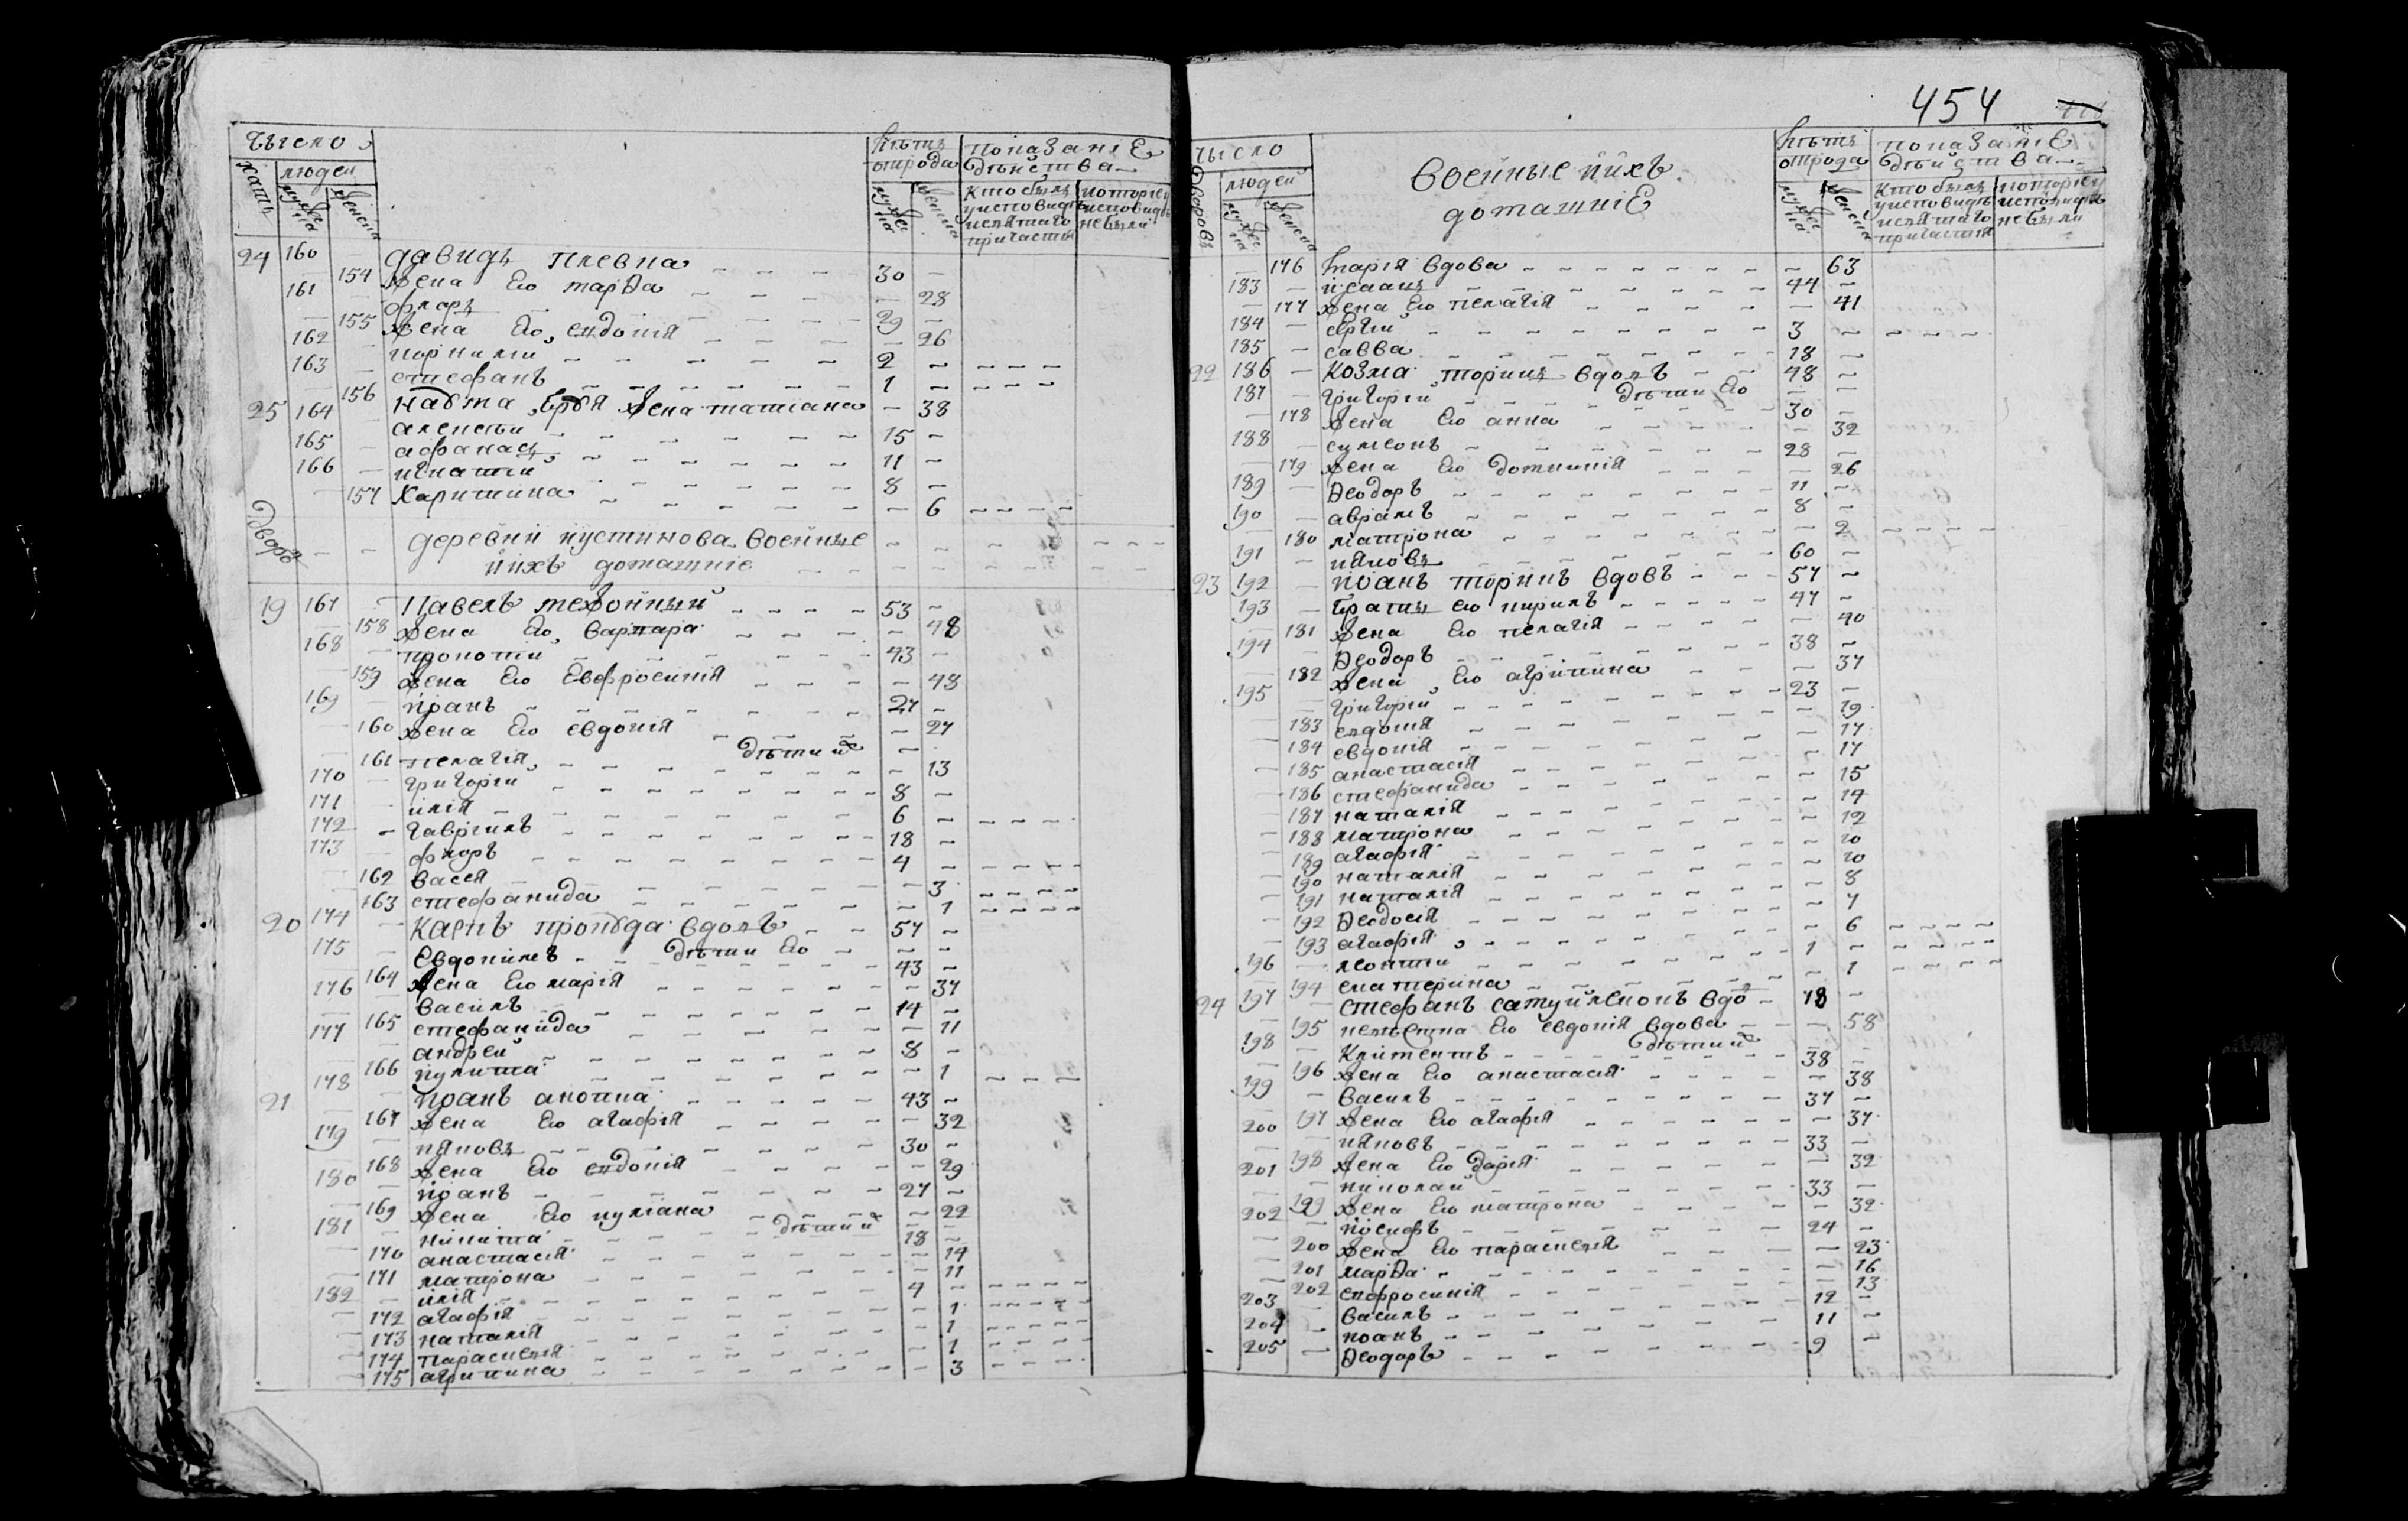 число
хатъ
людей
мужеска
женска
лѣтъ отрода
мужеска
женска
показаніе дѣйства
кто былъ у исповиди и святаго причастія
которіе у исповиди не были
24 160 давидъ плевка 30
154 жена его марѳа 28
161 флоръ 29
155 жена его евдокія 26
162 корнилій 2 ~
163 стефанъ 1 ~
25 156 жена татіана 38
164 алексѣй 15 ~
165 афанас 11 ~
166 игнатій 8 ~
157 харитина 6
дворъ деревни кустинова военные
и ихъ домашніе
19 167 Павелъ межойный 53 ~
158 жена его варвара 48
168 прокопій 43
159 жена его евфросинія 48
169 іоанъ 27 ~
160 жена его евдокія 27
дѣти ихъ
161 пелагія 13
170 григорій 8 ~
171 илія 6 ~
172 гавріилъ 18 ~
173 флоръ 4 ~
162 васся 3
163 стефанида 1
20 174 Карпъ вдовъ 57 ~
дѣти его
175 Евдокимъ 43 ~
164 жена его марія 37
176 василъ 14 ~
165 стефанида 11
177 андрей 8 ~
166 1
178 21 іоанъ 43 ~
167 жена его агафія 32
179 яковъ 30 ~
168 жена его евдокія 29
180 іоанъ 27 ~
169 жена его уліана 22
дѣти ихъ
181 никита 18 ~
170 анастасія 14
171 матрона 11
182 илія 4 ~
172 агафія 1
173 наталія 1
174 параскевія 1
175 агрипина 3
454
число
дворовъ
людей
мужеска
женска
военные и ихъ
домашніе
лѣтъ отрода
мужеска
женска
показаніе дѣйства
кто былъ у исповидѣ и святаго причастія
которіе у исповидѣ не были
176 марія вдова 63
183 исаакъ 44 ~
177 жена его пелагія 41
184 сергій 3 ~
185 савва 18 ~
22 186 Козма торикъ вдовъ 48 ~
дѣти его
187 григорій 30 ~
178 жена его анна 32
188 сумеонъ 28
179 жена его домникія 26
189 ѳеодоръ 11 ~
190 аврамъ 8 ~
180 матрона 2
191 яковъ 60 ~
23 192 іоанъ торикъ вдовъ 57 ~
193 братъ его кирилъ 47 ~
181 жена его пелагія 40
194 ѳеодоръ 38 ~
182 жена его агрипина 37
195 григорій 23 ~
183 евдокія 19
184 евдокія 17
185 анастасія 17
186 стефанида 15
187 наталія 14
188 матрона 12
189 агафія 10
190 наталія 10
191 наталія 8
192 ѳеодосія 7
193 агафія 6
196 леонтій 1 ~
194 екатерина 1
24 197 стефанъ самуйленокъ вдо 78 ~
195 невѣстка его евдокія вдова 58
дѣти ихъ
198 Климентъ 38 ~
196 жена его анастасія 38
199 василъ 37 ~
197 жена его агафія 37
200 яковъ 33 ~
198 жена его дарія 32
201 николай 33 ~
199 жена его матрона 32
202 іосифъ 24 ~
200 жена его параскевія 23
201 марѳа 16
202 евфросинія 13
203 василъ 12 ~
204 іоанъ 11 ~
205 ѳеодоръ 9 ~